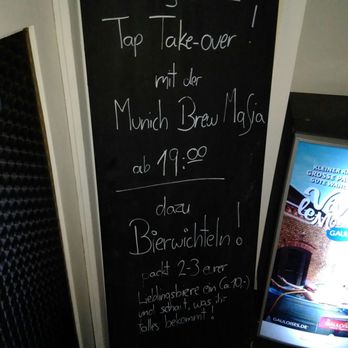 Tap Take-over!
mit der
Munich Brew Mafia
ab 19:00
dazu
Bierwichteln!
packt 2-3 eurer
Lieblingsbiere ein (ca. 10,-)
und schaut, was ihr
tolles bekommt!
KLEINER
GROSSE
GUTE WAHL
GAULOISES.DE